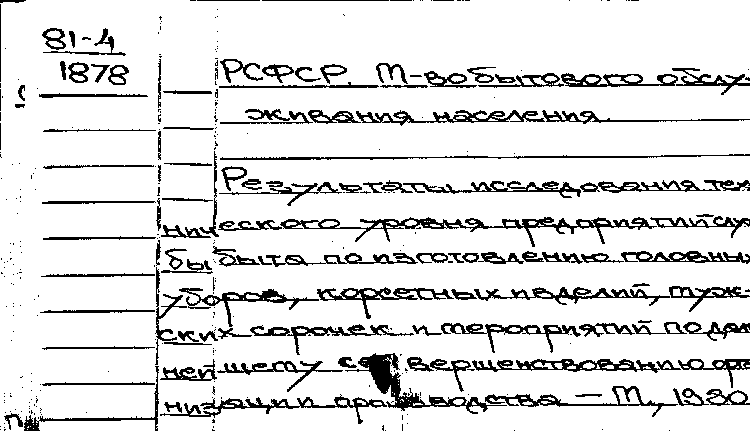 81-4
1878
РСФСР. М-во бытового обслу-
живания населения.
Результаты исследования тех
нического уровня предприятий слу
бы быта по изготовлению головных
уборов, корсетных изделий, муж-
ских сорочек и мероприятий по даль
нейшему вершенствованию орга
низации производства — М., 1980